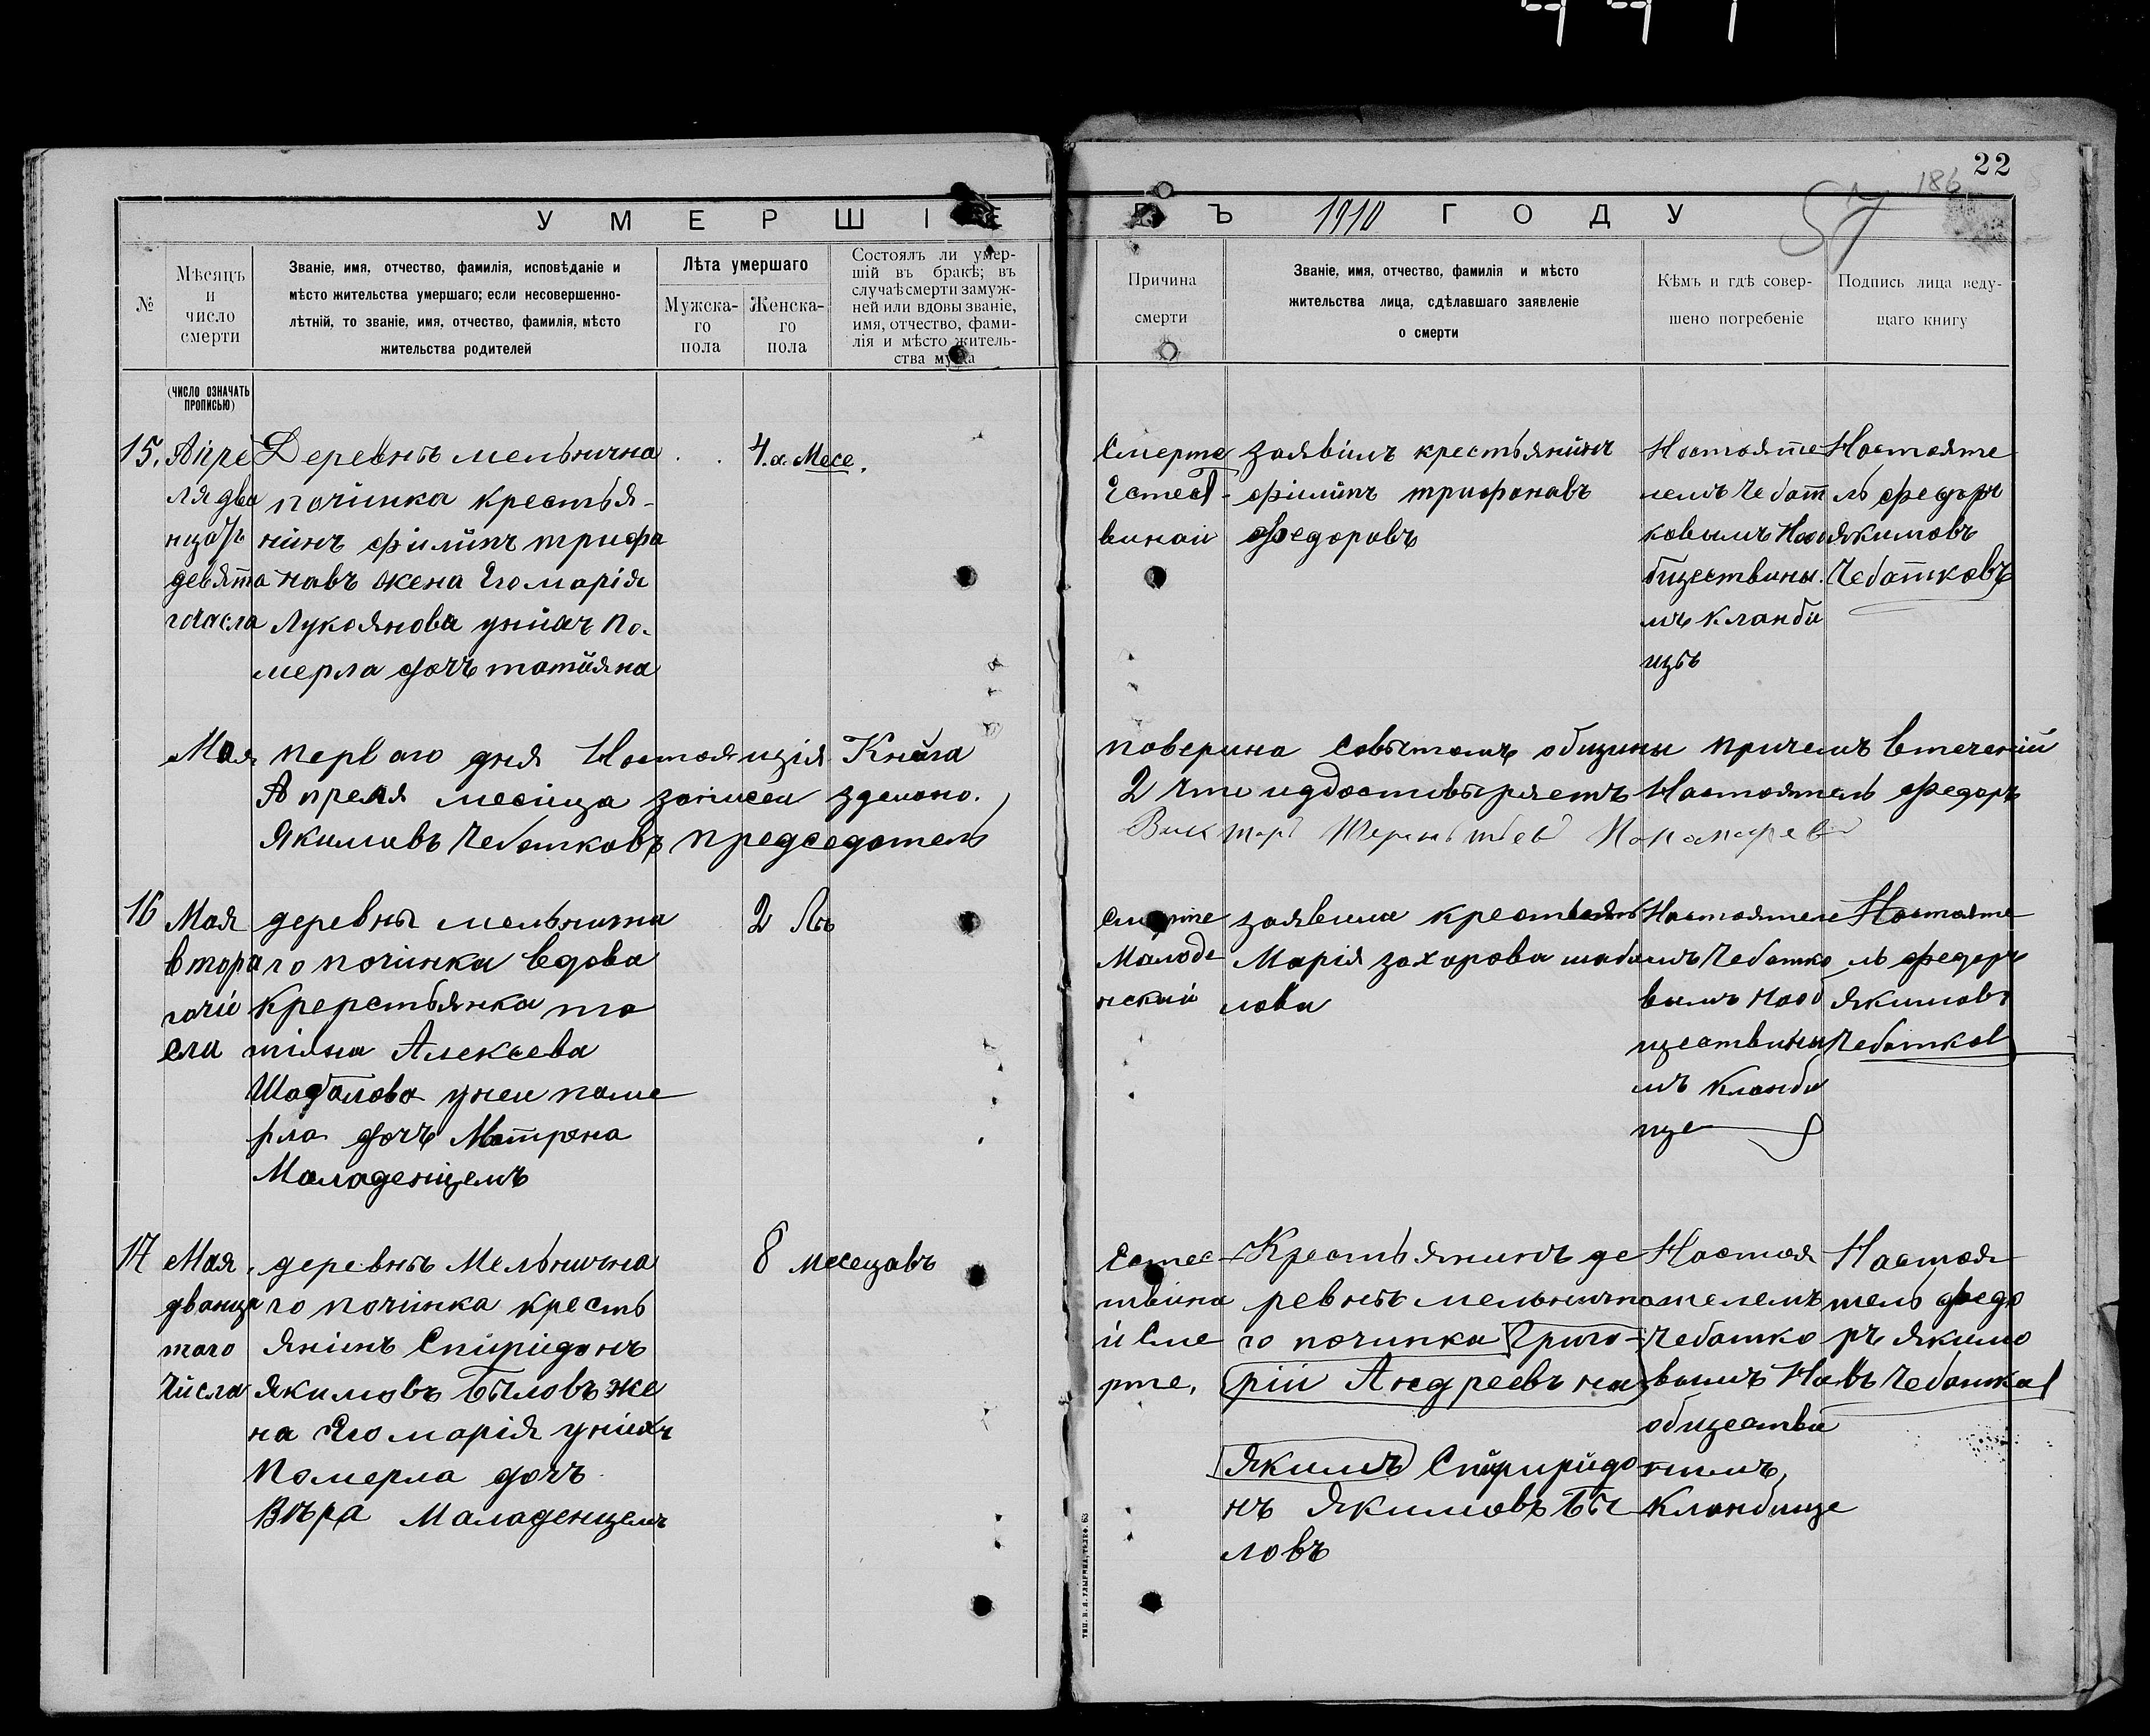 22
186
57
УМЕРШІЕ
ВЪ 1910 ГОДУ
№
Мѣсяцъ и число смерти
Званіе, имя, отчество, фамилія, исповѣданіе и
мѣсто жительства умершаго; если несовершенно-
лѣтній, то званіе, имя, отчество, фамилія, мѣсто
жительства родителей
Лѣта умершаго
Мужска-
го
пола
Женска-
го
пола
Состоялъ ли умер-
шій въ бракѣ; въ
случаѣ смерти замуж-
ней или вдовы званіе,
имя, отчество, фами-
лія и мѣсто житель-
ства мужа
Причина
смерти
Званіе, имя, отчество, фамилія и мѣсто
жительства лица, сдѣлавшаго заявленіе
о смерти
Кѣмъ и гдѣ совер-
шено погребеніе
Подпись лица веду-
щаго книгу
(ЧИСЛО ОЗНАЧАТЬ
ПРОПИСЬЮ)
15.
Апре
ля два
нцать
девята
Деревнѣ мельнична
починка крестья-
нинъ филипъ трифа
навъ жена Его марія
Лукоянова унихъ по-
мерла дочъ татияна
4.х. Месе.
Смерте
Естест-
винаи
заявилъ крестьянинъ
филипъ трифонавъ
федоровъ
Настояте
лемъ Чебот
ковымъ Нао
бществины.
мъ кланби
щѣ
Настояте
ль федоръ
якимовъ
Чеботковъ
Мая перваго дня Настоящія Книга
поверина Совѣтомъ общины причемъ втечений
Апреля месица записеи зделано.
2 что иудостовѣряетъ Настоятель федоръ
Якимовъ Чеботковъ председатель
Виктор
16
Мая
втора
гочи
сла
деревнѣ мельнична
го починка вдова
крерстьянка та
тияна Алексеева
Шабалова унеи паме
рла дочъ Матрена
Маладенцемъ
2 Лѣ
Смерте
Малоде
нский
заявила крестьянь
Марія захарова шаба
лова
Настояте
лемъ Чеботко
вымъ Нооб
ществины
мъ Кланби
ще
Настояте
ль федоръ
якимовъ
Чеботков
17
Мая.
дванца
таго
Числа
деревнѣ Мельнична
го починка кресть
янинъ Спиридонъ
якимовъ Быловъ же
на Его марія унихъ
Померла дочъ
Вѣра Маладенцемъ
8 месецавъ
Естес-
твина
и Сме
рте.
Крестьянинъ де
ревнѣ мельнична
го починка Григо-
рій Андреевъ на
якимъ Спириридо
нъ якимовъ Бы
ловъ
Настоя
телемъ
Чеботко
вымъ На
обществи
нымъ,
Кланбище
Настоя
тель федо
ръ якимо
въ Чеботков
ТИП. В. Я. УЛЫБИНА, ТЕЛЕФ. 63